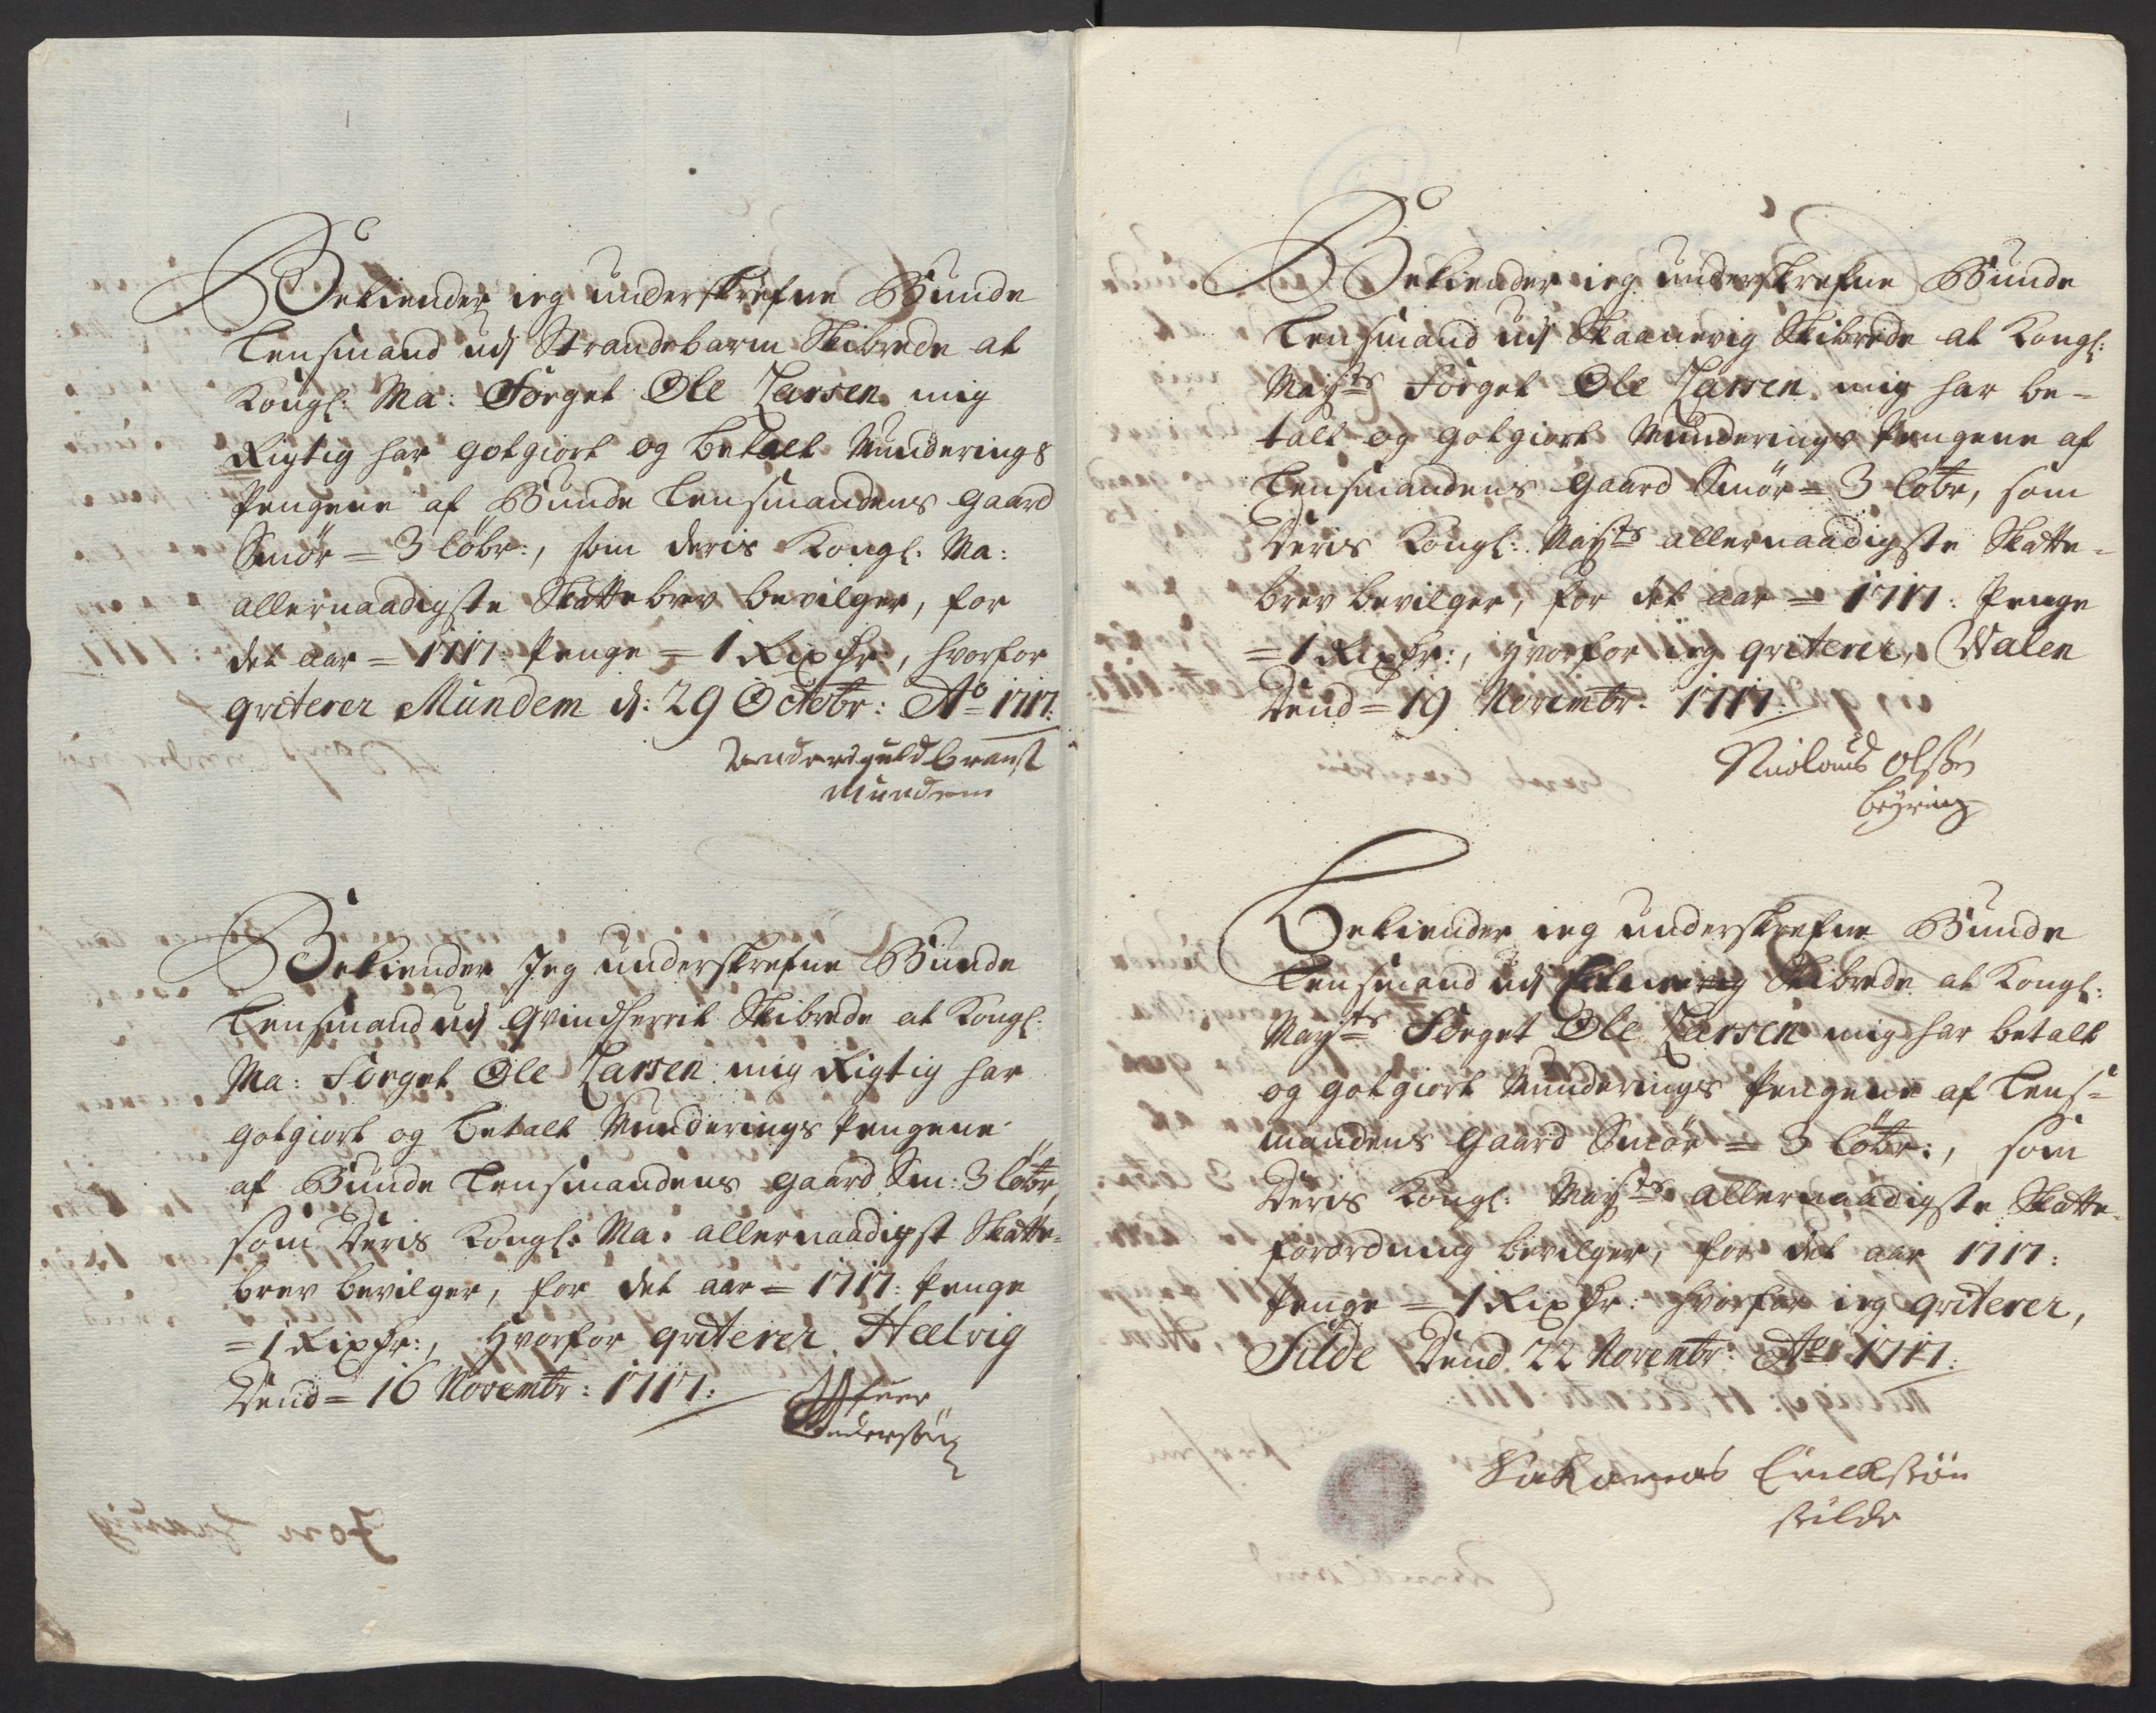 Bekiender ieg underskrefne Bunde
Lensmand udj Strandebarm Skibrede at
Kongl: Ma: Foeget Ole Larsen mig
Rigtig har gotgiort og betalt Munderings
Pengene af Bunde Lensmandens gaard
Smör = 3 löbr:, som deris Kongl: Ma:
allernaadigste Skattebrev bevilger, for
det aar = 1717: Penge = 1 Rixdr:, hvorfor
qviterer Mundem d: 29 Octobr: Ao 1717:
Mundem
Bekiender Jeg underskrefne Bunde
Lensmand udj Qvindherrit Skibrede at Kongl:
Ma: Foeget Ole Larsen mig Rigtig har
gotgiort og betalt Munderings Pengene
af Bunde Lensmandens gaard Sm: 3 löbr,
som Deris Kongl: Ma: allernaadigst Skatte-
brev bevilger, for det aar = 1717: Penge
= 1 Rixdr:, hvorfor qviterer Helvig
Dend = 16 Novembr: 1717:
Andersön
Bekiender ieg underskrefne Bunde
Lensmand udj Skaanevig Skibrede at Kongl:
Mayts Foeget Ole Larsen mig har be-
talt og gotgiort Munderings Pengene af
Lensmandens gaard Smör = 3 löbr, som
Deris Kongl: Mayts allernaadigste Skatte-
brev bevilger, for det aar = 1717: Penge
= 1 Rixdr:, hvorfor ieg qviterer, Valen
Dend = 19 Novembr: 1717:
Nicolaus Olsen
Beyring
Bekiender ieg underskrefne Bunde
Lensmand udj Skibrede at Kongl:
Mayts Foeget Ole Larsen mig har betalt
og gotgiort Munderings Pengene af Lens-
mandens gaard Smör = 3 löbr:, som
Deris Kongl: Mayts allernaadigste Skatte-
forordning bevilger, for det aar 1717:
Penge = 1 Rixdr: hvorfor ieg qviterer,
Silde Dend 22 Novembr: Ao 1717:
Erickssön
silde